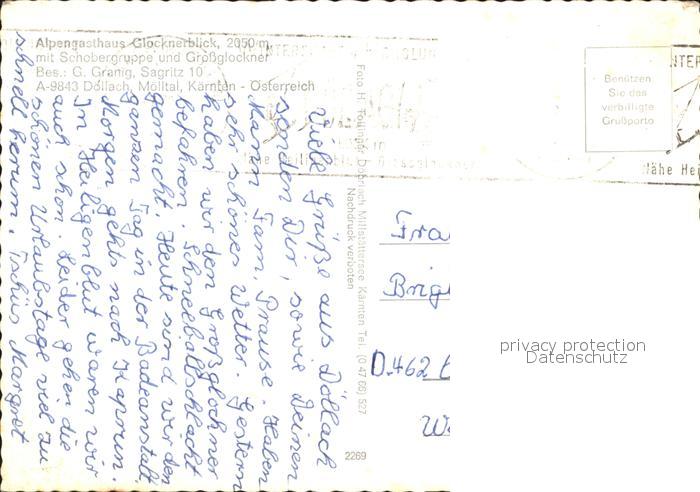 Alpengasthaus Glocknerblick, 2050 m,
mit Schobergruppe und Großglockner
Bes.: G. Granig, Sagritz 10
A-9843 Döllach, Mölltal, Kärnten - Österreich
Viele Grüße aus Döllach
senden Dir, sowie Deinen
Mann Fam. Prause. Haben
sehr schönes Wetter. Gestern
haben wir den Großglockner
befahren. Schneeballschlacht
gemacht. Heute sind wir den
ganzen Tag in der Badeanstalt.
Morgen gehts nach Kaprun.
In Heiligenblut waren wir
auch schon. Leider gehen die
schönen Urlaubstage viel zu
schnell herum. Tschüs Margret
Foto H. Dobriach Millstättersee Kärnten Tel. (0 47 66) 527
Nachdruck verboten
2269
Benützen
Sie das
verbilligte
Grußporto
Nähe Hei
Fra
Brig
D.462
privacy protection
Datenschutz